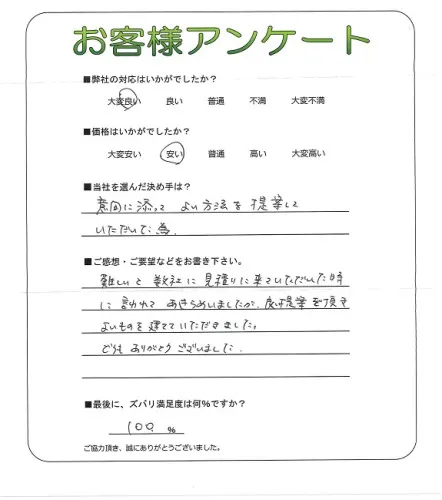 お客様アンケート
■弊社の対応はいかがでしたか？
大変良い　良い　普通　不満　大変不満
■価格はいかがでしたか？
大変安い　安い　普通　高い　大変高い
■当社を選んだ決め手は？
意向に添って よい方法を提案して
いただいた為.
■ご感想・ご要望などをお書き下さい。
難しいと数社に見積りに来ていただいた時
に言われて あきらめいましたが、提案を頂き
よいものを建てていただきました。
どうも ありがとうございました.
■最後に、ズバリ満足度は何％ですか？
100 %
ご協力頂き、誠にありがとうございました。